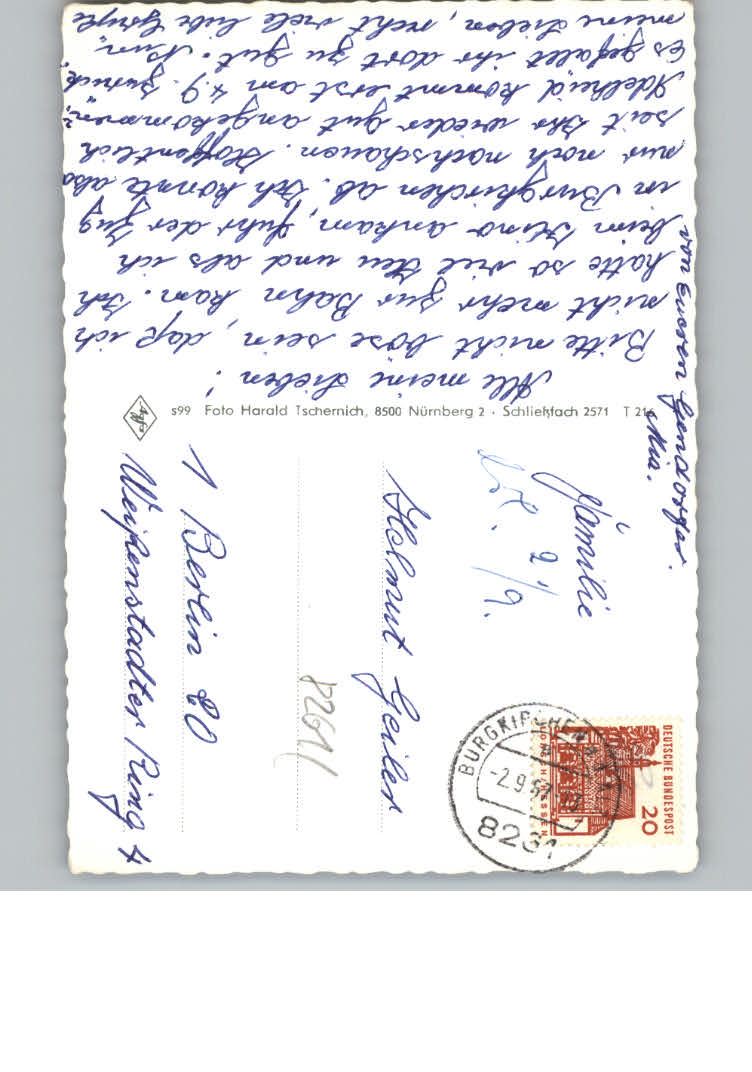 Alle meine Lieben!
Bitte nicht böse sein, daß ich
nicht mehr zur Bahn kam. Ich
hatte so viel Heu und als ich
beim Kino ankam, fuhr der Zug
in Burgkirchen ab. Ich konnte also
nur noch nachschauen. Hoffentlich
seit Ihr wieder gut angekommen.
Adelheid kommt erst am 4.9. zurück,
Es gefällt ihr dort zu gut. Nun,
meine Lieben, recht viele liebe Grüße
von Eueren Gendorfer
Mia.
s99 Foto Harald Tschernich, 8500 Nürnberg 2 · Schließfach 2571 T 216
Agfa
Familie
2/9.
Helmut Geiler
82691
1 Berlin 20
Weißenstadter Ring 4
BURGKIRCHEN
-2.9.67
8261
DEUTSCHE BUNDESPOST
20
LORSCH HESSEN